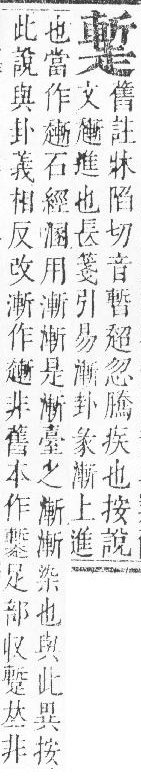 舊註牀陷切音暫超忽騰疾也按說
文𧽯進也長箋引易漸卦彖漸上進
也當作𧽯石經溷用漸漸是漸臺之漸漸染也與此異按
此說與卦義相反改漸作𧽯非舊本作足部収蹔𠀤非